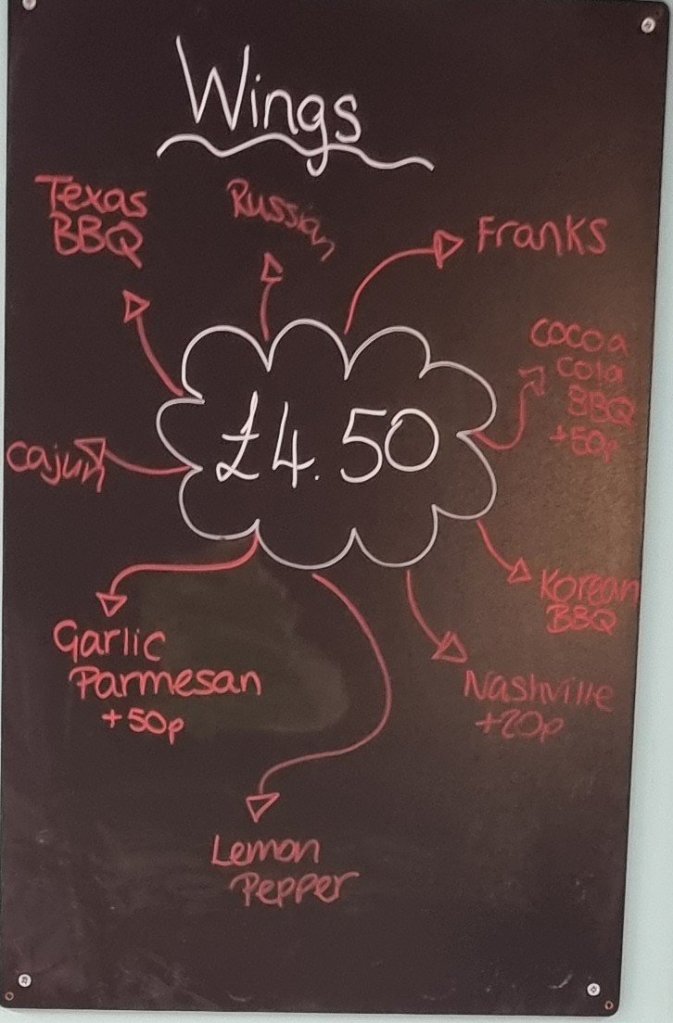 Wings
Texas
BBQ
Russian
Franks
Cocoa
Cola
BBQ
+50p
£4.50
Cajun
Korean
BBQ
Garlic
Parmesan
+50p
Nashville
+20p
Lemon
Pepper